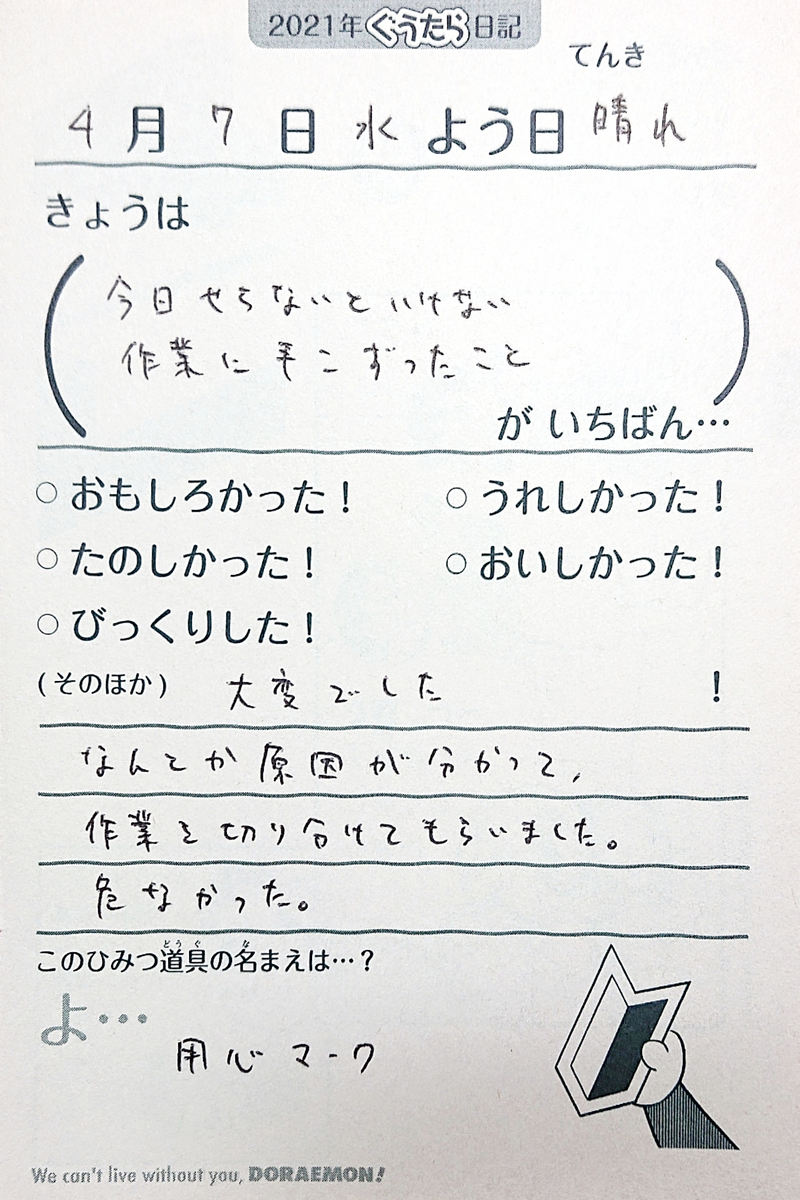 2021年ぐうたら日記
てんき
4月7日水よう日 晴れ
きょうは
今日せらないといけない
作業に手こずったこと
がいちばん…
○おもしろかった! ○うれしかった!
○たのしかった! ○おいしかった!
○びっくりした!
(そのほか) 大変でした !
なんとか原因が分かって、
作業を切り分けてもらいました。
危なかった。
どうぐ な
このひみつ道具の名まえは…?
よ…
用心マーク
We can't live without you, DORAEMON!